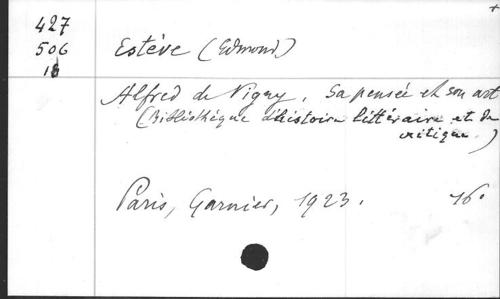 +
427
506
18
Estève (Edmond)
Alfred de Vigny, sa pensée et son art
(Bibliothèque d'histoire littéraire et de
critique.)
Paris, Garnier, 1923. 16°